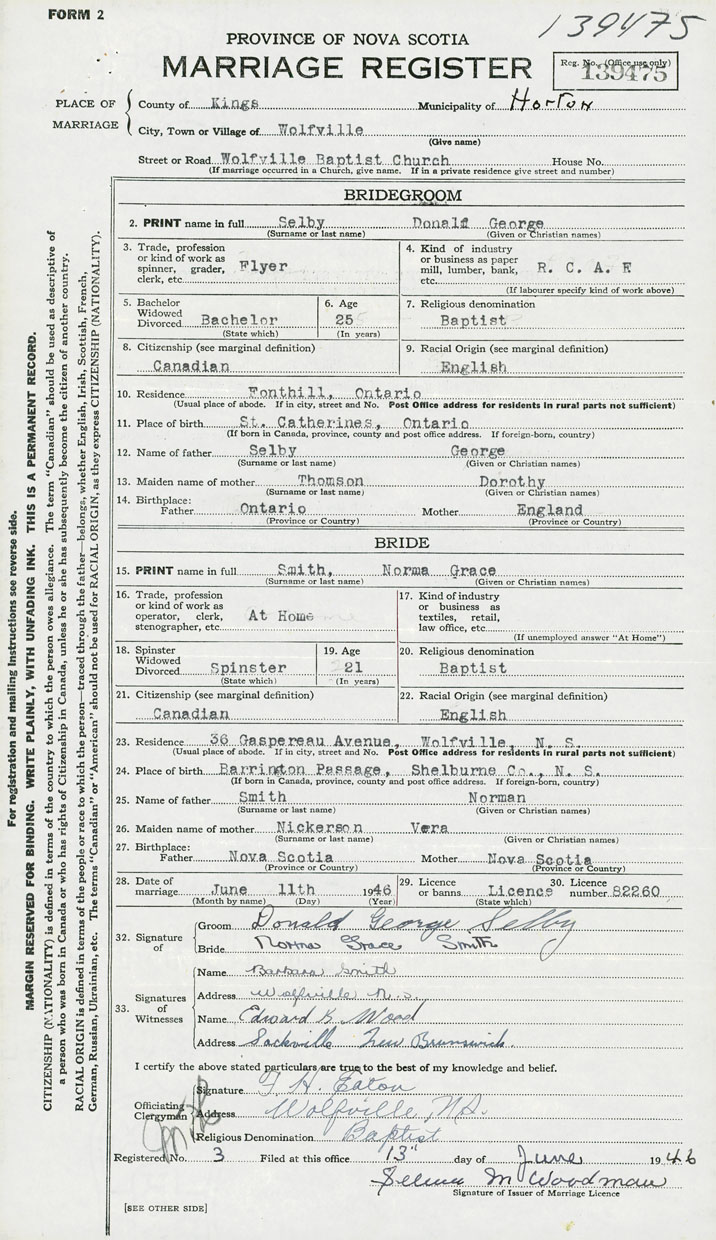 FORM 2
139475
PROVINCE OF NOVA SCOTIA
MARRIAGE REGISTER
Reg. No. (Office use only)
139475
PLACE OF MARRIAGE
County of Kings Municipality of Horton
City, Town or Village of Wolfville
(Give name)
Street or Road Wolfville Baptist Church House No.
(If marriage occurred in a Church, give name. If in a private residence give street and number)
BRIDEGROOM
2. PRINT name in full Selby Donald George
(Surname or last name) (Given or Christian names)
3. Trade, profession or kind of work as spinner, grader, clerk, etc. Flyer
4. Kind of industry or business as paper mill, lumber, bank, etc. R. C. A. F
(If labourer specify kind of work above)
5. Bachelor Widowed Divorced Bachelor
(State which)
6. Age 25
(In years)
7. Religious denomination
Baptist
8. Citizenship (see marginal definition)
Canadian
9. Racial Origin (see marginal definition)
English
10. Residence Fonthill, Ontario
(Usual place of abode. If in city, street and No. Post Office address for residents in rural parts not sufficient)
11. Place of birth St. Catherines, Ontario
(If born in Canada, province, county and post office address. If foreign-born, country)
12. Name of father Selby George
(Surname or last name) (Given or Christian names)
13. Maiden name of mother Thomson Dorothy
(Surname or last name) (Given or Christian names)
14. Birthplace:
Father Ontario Mother England
(Province or Country) (Province or Country)
BRIDE
15. PRINT name in full Smith, Norma Grace
(Surname or last name) (Given or Christian names)
16. Trade, profession or kind of work as operator, clerk, stenographer, etc. At Home
17. Kind of industry or business as textiles, retail, law office, etc.
(If unemployed answer "At Home")
18. Spinster Widowed Divorced Spinster
(State which)
19. Age 21
(In years)
20. Religious denomination
Baptist
21. Citizenship (see marginal definition)
Canadian
22. Racial Origin (see marginal definition)
English
23. Residence 36 Gaspereau Avenue, Wolfville, N. S.
(Usual place of abode. If in city, street and No. Post Office address for residents in rural parts not sufficient)
24. Place of birth Barrington Passage, Shelburne Co., N. S.
(If born in Canada, province, county and post office address. If foreign-born, country)
25. Name of father Smith Norman
(Surname or last name) (Given or Christian names)
26. Maiden name of mother Nickerson Vera
(Surname or last name) (Given or Christian names)
27. Birthplace:
Father Nova Scotia Mother Nova Scotia
(Province or Country) (Province or Country)
28. Date of marriage June 11th 1946
(Month by name) (Day) (Year)
29. Licence or banns Licence
(State which)
30. Licence number 82260
32. Signature of
Groom Donald George Selby
Bride Norma Grace Smith
33. Signatures of Witnesses
Name Barbara Smith
Address Wolfville N.S.
Name Edward K. Wood
Address Sackville New Brunswick.
I certify the above stated particulars are true to the best of my knowledge and belief.
Officiating Clergyman
Signature F. H. Eaton
Address Wolfville N.S.
Religious Denomination Baptist
Registered No. 3 Filed at this office 13" day of June 1946
Woodman
Signature of Issuer of Marriage Licence
[SEE OTHER SIDE]
For registration and mailing instructions see reverse side.
MARGIN RESERVED FOR BINDING. WRITE PLAINLY, WITH UNFADING INK. THIS IS A PERMANENT RECORD.
CITIZENSHIP (NATIONALITY) is defined in terms of the country to which the person owes allegiance. The term "Canadian" should be used as descriptive of
a person who was born in Canada or who has rights of Citizenship in Canada, unless he or she has subsequently become the citizen of another country.
RACIAL ORIGIN is defined in terms of the people or race to which the person—traced through the father—belongs, whether English, Irish, Scottish, French,
German, Russian, Ukrainian, etc. The terms "Canadian" or "American" should not be used for RACIAL ORIGIN, as they express CITIZENSHIP (NATIONALITY).